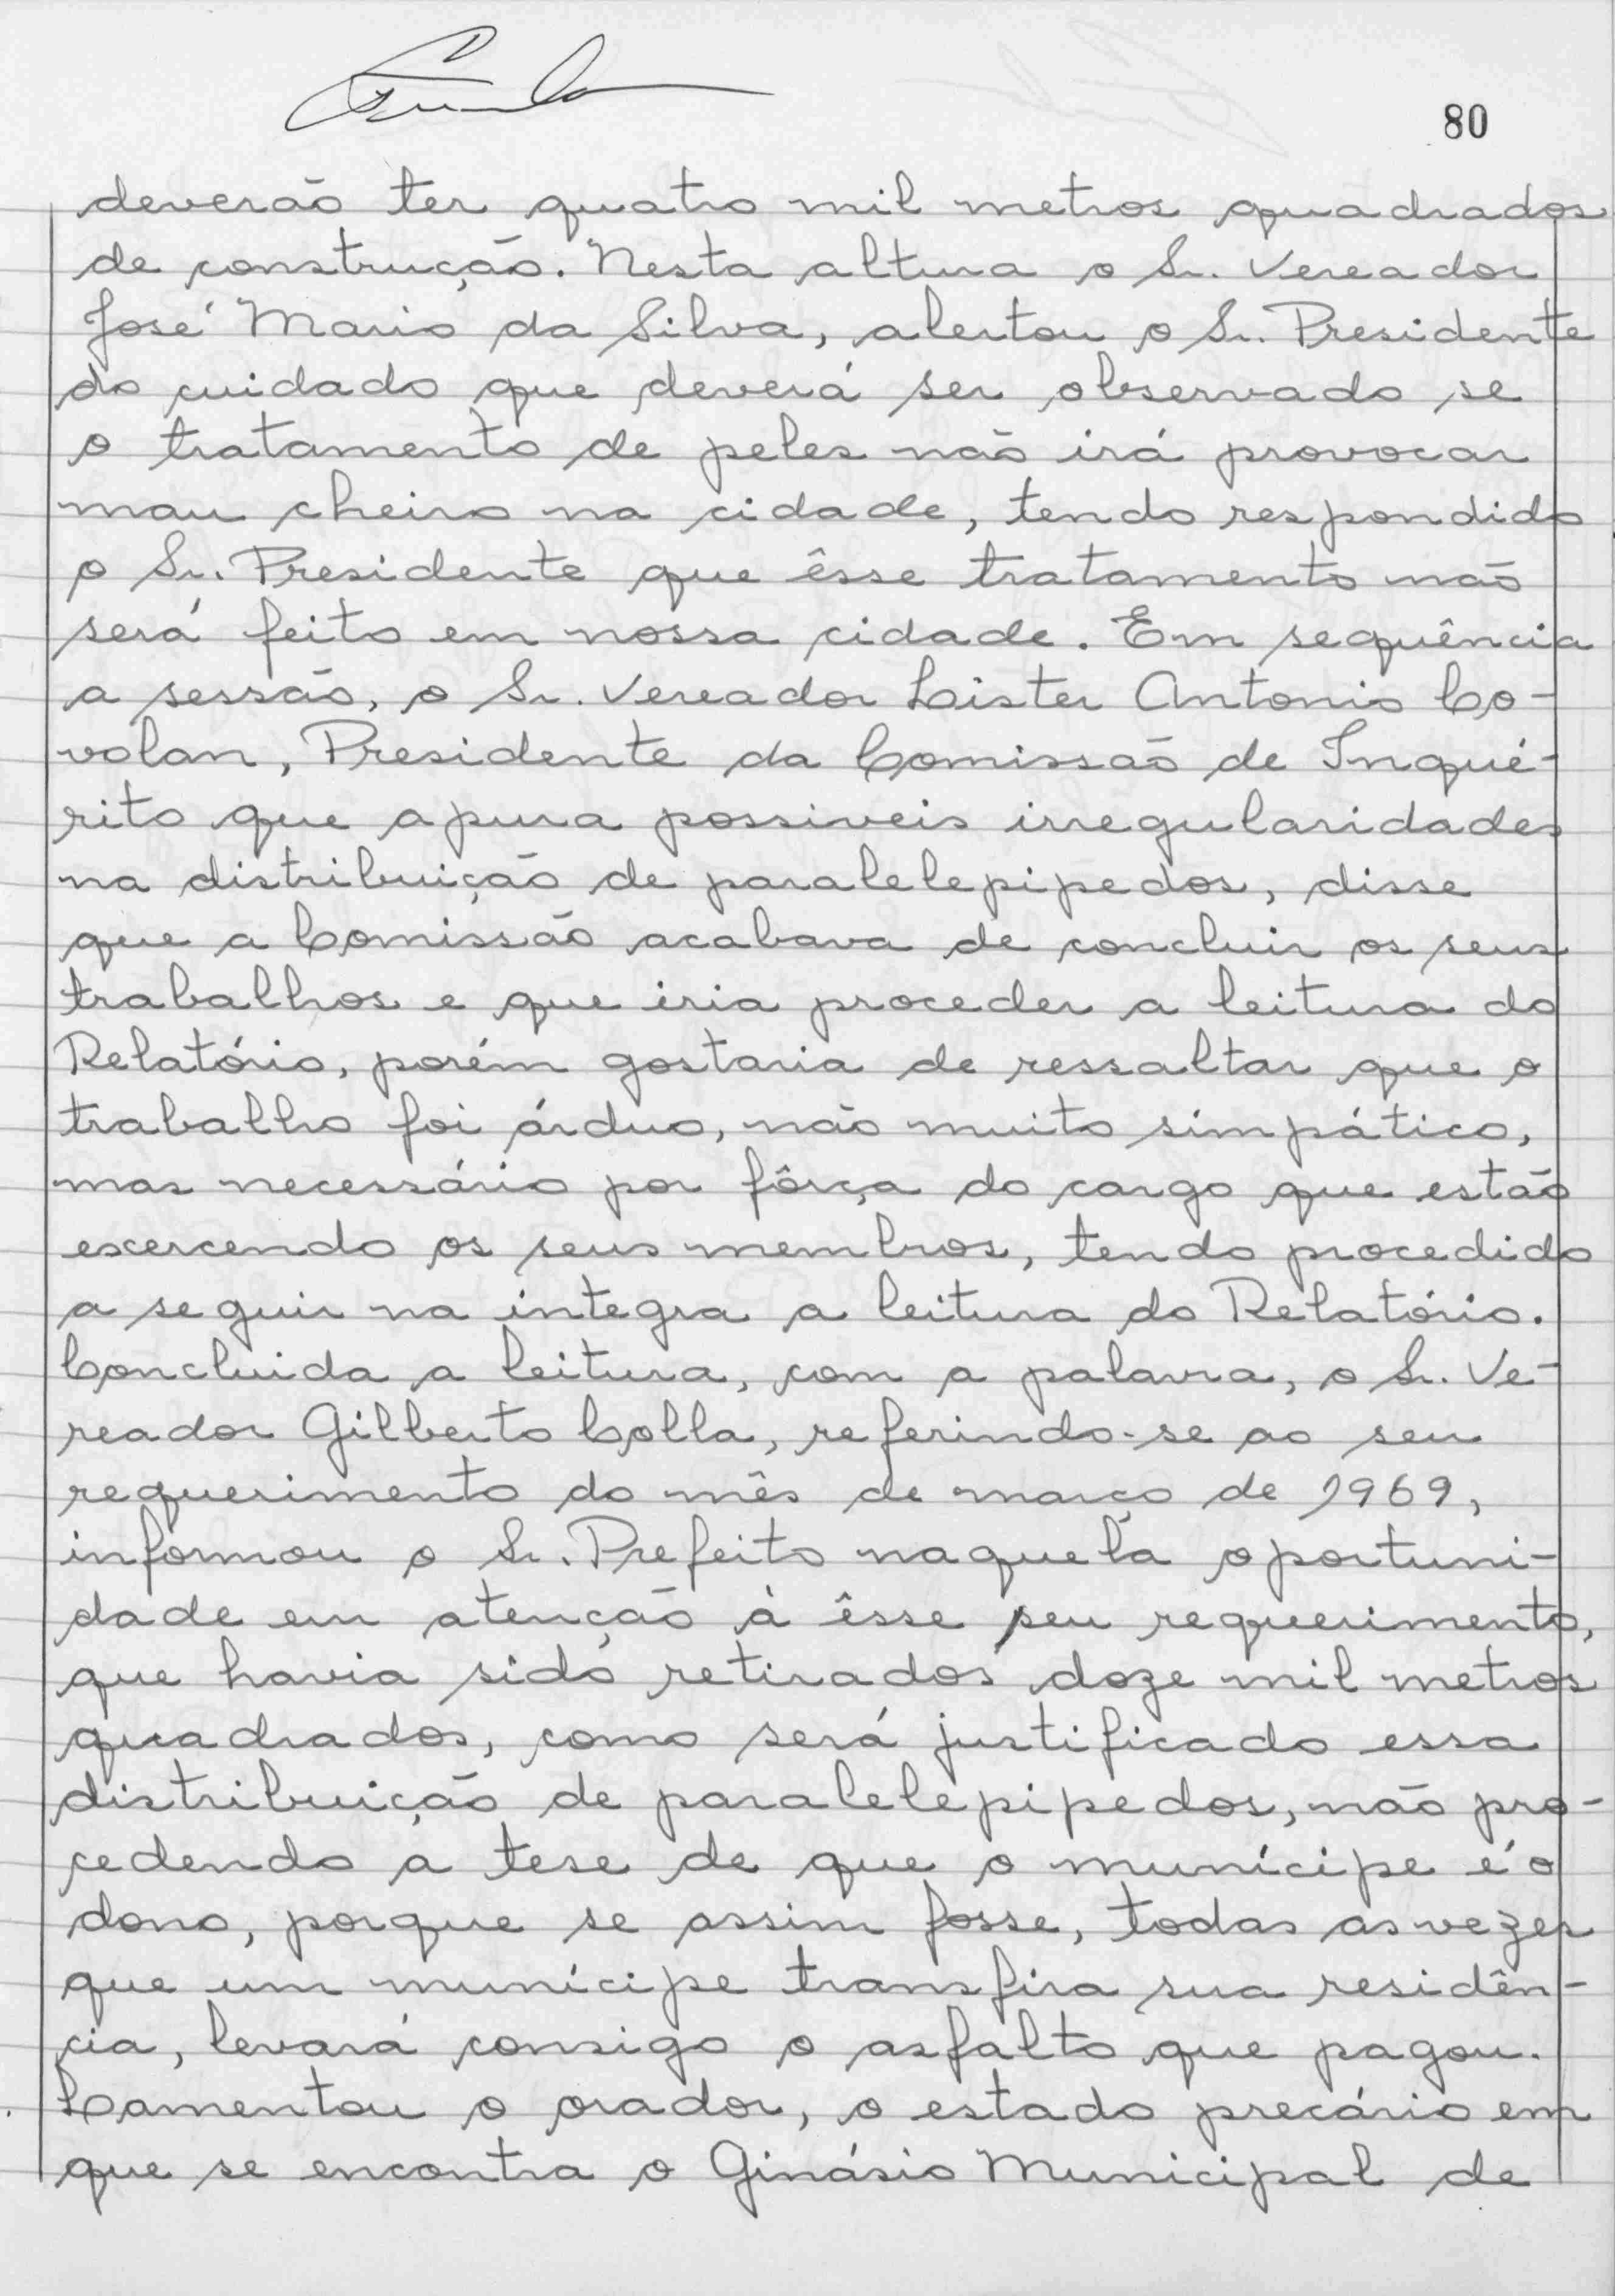 80
deverão ter quatro mil metros quadrados
de construção. Nesta altura o Sr. Vereador
José Mario da Silva, alertou o Sr. Presidente
do cuidado que deverá ser observado se
o tratamento de peles não irá provocar
mau cheiro na cidade, tendo respondido
o Sr. Presidente que êsse tratamento não
será feito em nossa cidade. Em sequência
a sessão, o Sr. Vereador Lister Antonio Co-
volan, Presidente da Comissão de Inqué-
rito que apura possiveis irregularidades
na distribuição de paralelepipedos, disse
que a Comissão acabava de concluir os seus
trabalhos e que iria proceder a leitura do
Relatório, porém gostaria de ressaltar que o
trabalho foi árduo, não muito simpático,
mas necessário por fôrça do cargo que estão
excercendo os seus membros, tendo procedido
a seguir na integra a leitura do Relatório.
Concluida a leitura, com a palavra, o Sr. Ve-
reador Gilberto Colla, referindo-se ao seu
requerimento do mês de março de 1969,
informou o Sr. Prefeito naquela oportuni-
dade em atenção à êsse seu requerimento,
que havia sido retirados doze mil metros
quadrados, como será justificado essa
distribuição de paralelepipedos, não pro-
cedendo a tese de que o munícipe é o
dono, porque se assim fosse, todas as vezes
que um munícipe transfira sua residên-
cia, levará consigo o asfalto que pagou.
Lamentou o orador, o estado precário em
que se encontra o Ginásio Municipal de